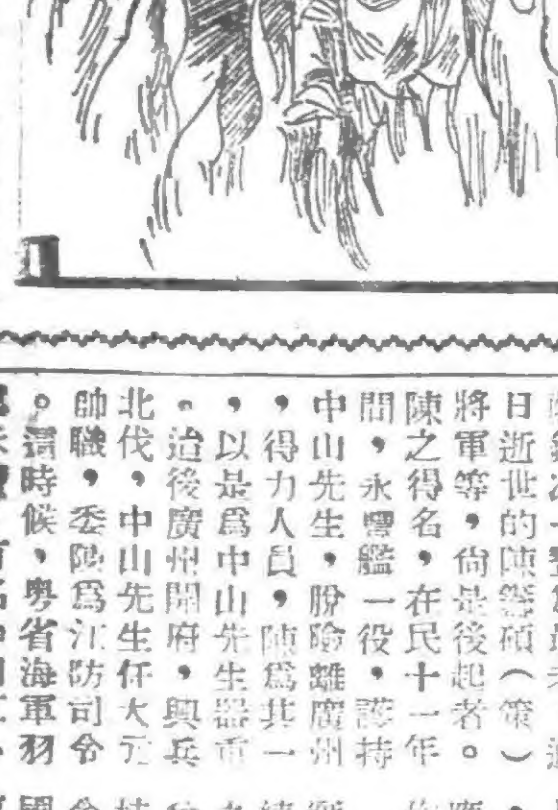 日逝世的陳籌碩(策)
將軍等,尙是後起者。
陳之得名,在民十一年
間,永豐艦一役,護持
中山先生,脫險離廣州
,得力人員,陳爲其一
,以是爲中山先生器重
。迨後廣州開府,興兵
北伐,中山先生任大元
帥職,委陳爲江防司令
。這時候,粵省海軍羽